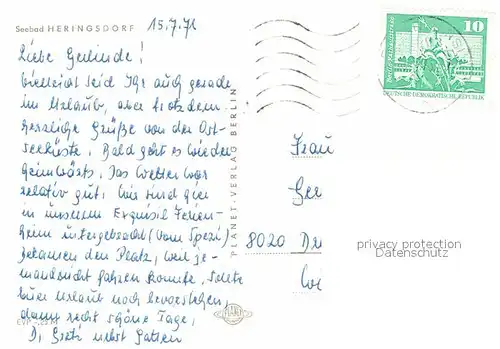 Seebad HERINGSDORF
15.7.71
Liebe Gerlinde!
vielleicht seid Ihr auch gerade
im Urlaub, aber trotzdem
herzliche Grüße von der Ost-
seeküste. Bald geht es wieder
heimwärts. Das Wetter war
relativ gut. Wir sind hier
in unserem Exquisit Ferien-
heim untergebracht (vom Spezi)
bekamen den Platz, weil je-
mand nicht fahren konnte. Sollte
euer Urlaub noch bevorstehen,
dann recht schöne Tage,
D. nebst Gatten
EVP
PLANET-VERLAG BERLIN
PLANET
10
DEUTSCHE DEMOKRATISCHE REPUBLIK
Frau
Ger
8020 Dr
Wi
privacy protection
Datenschutz